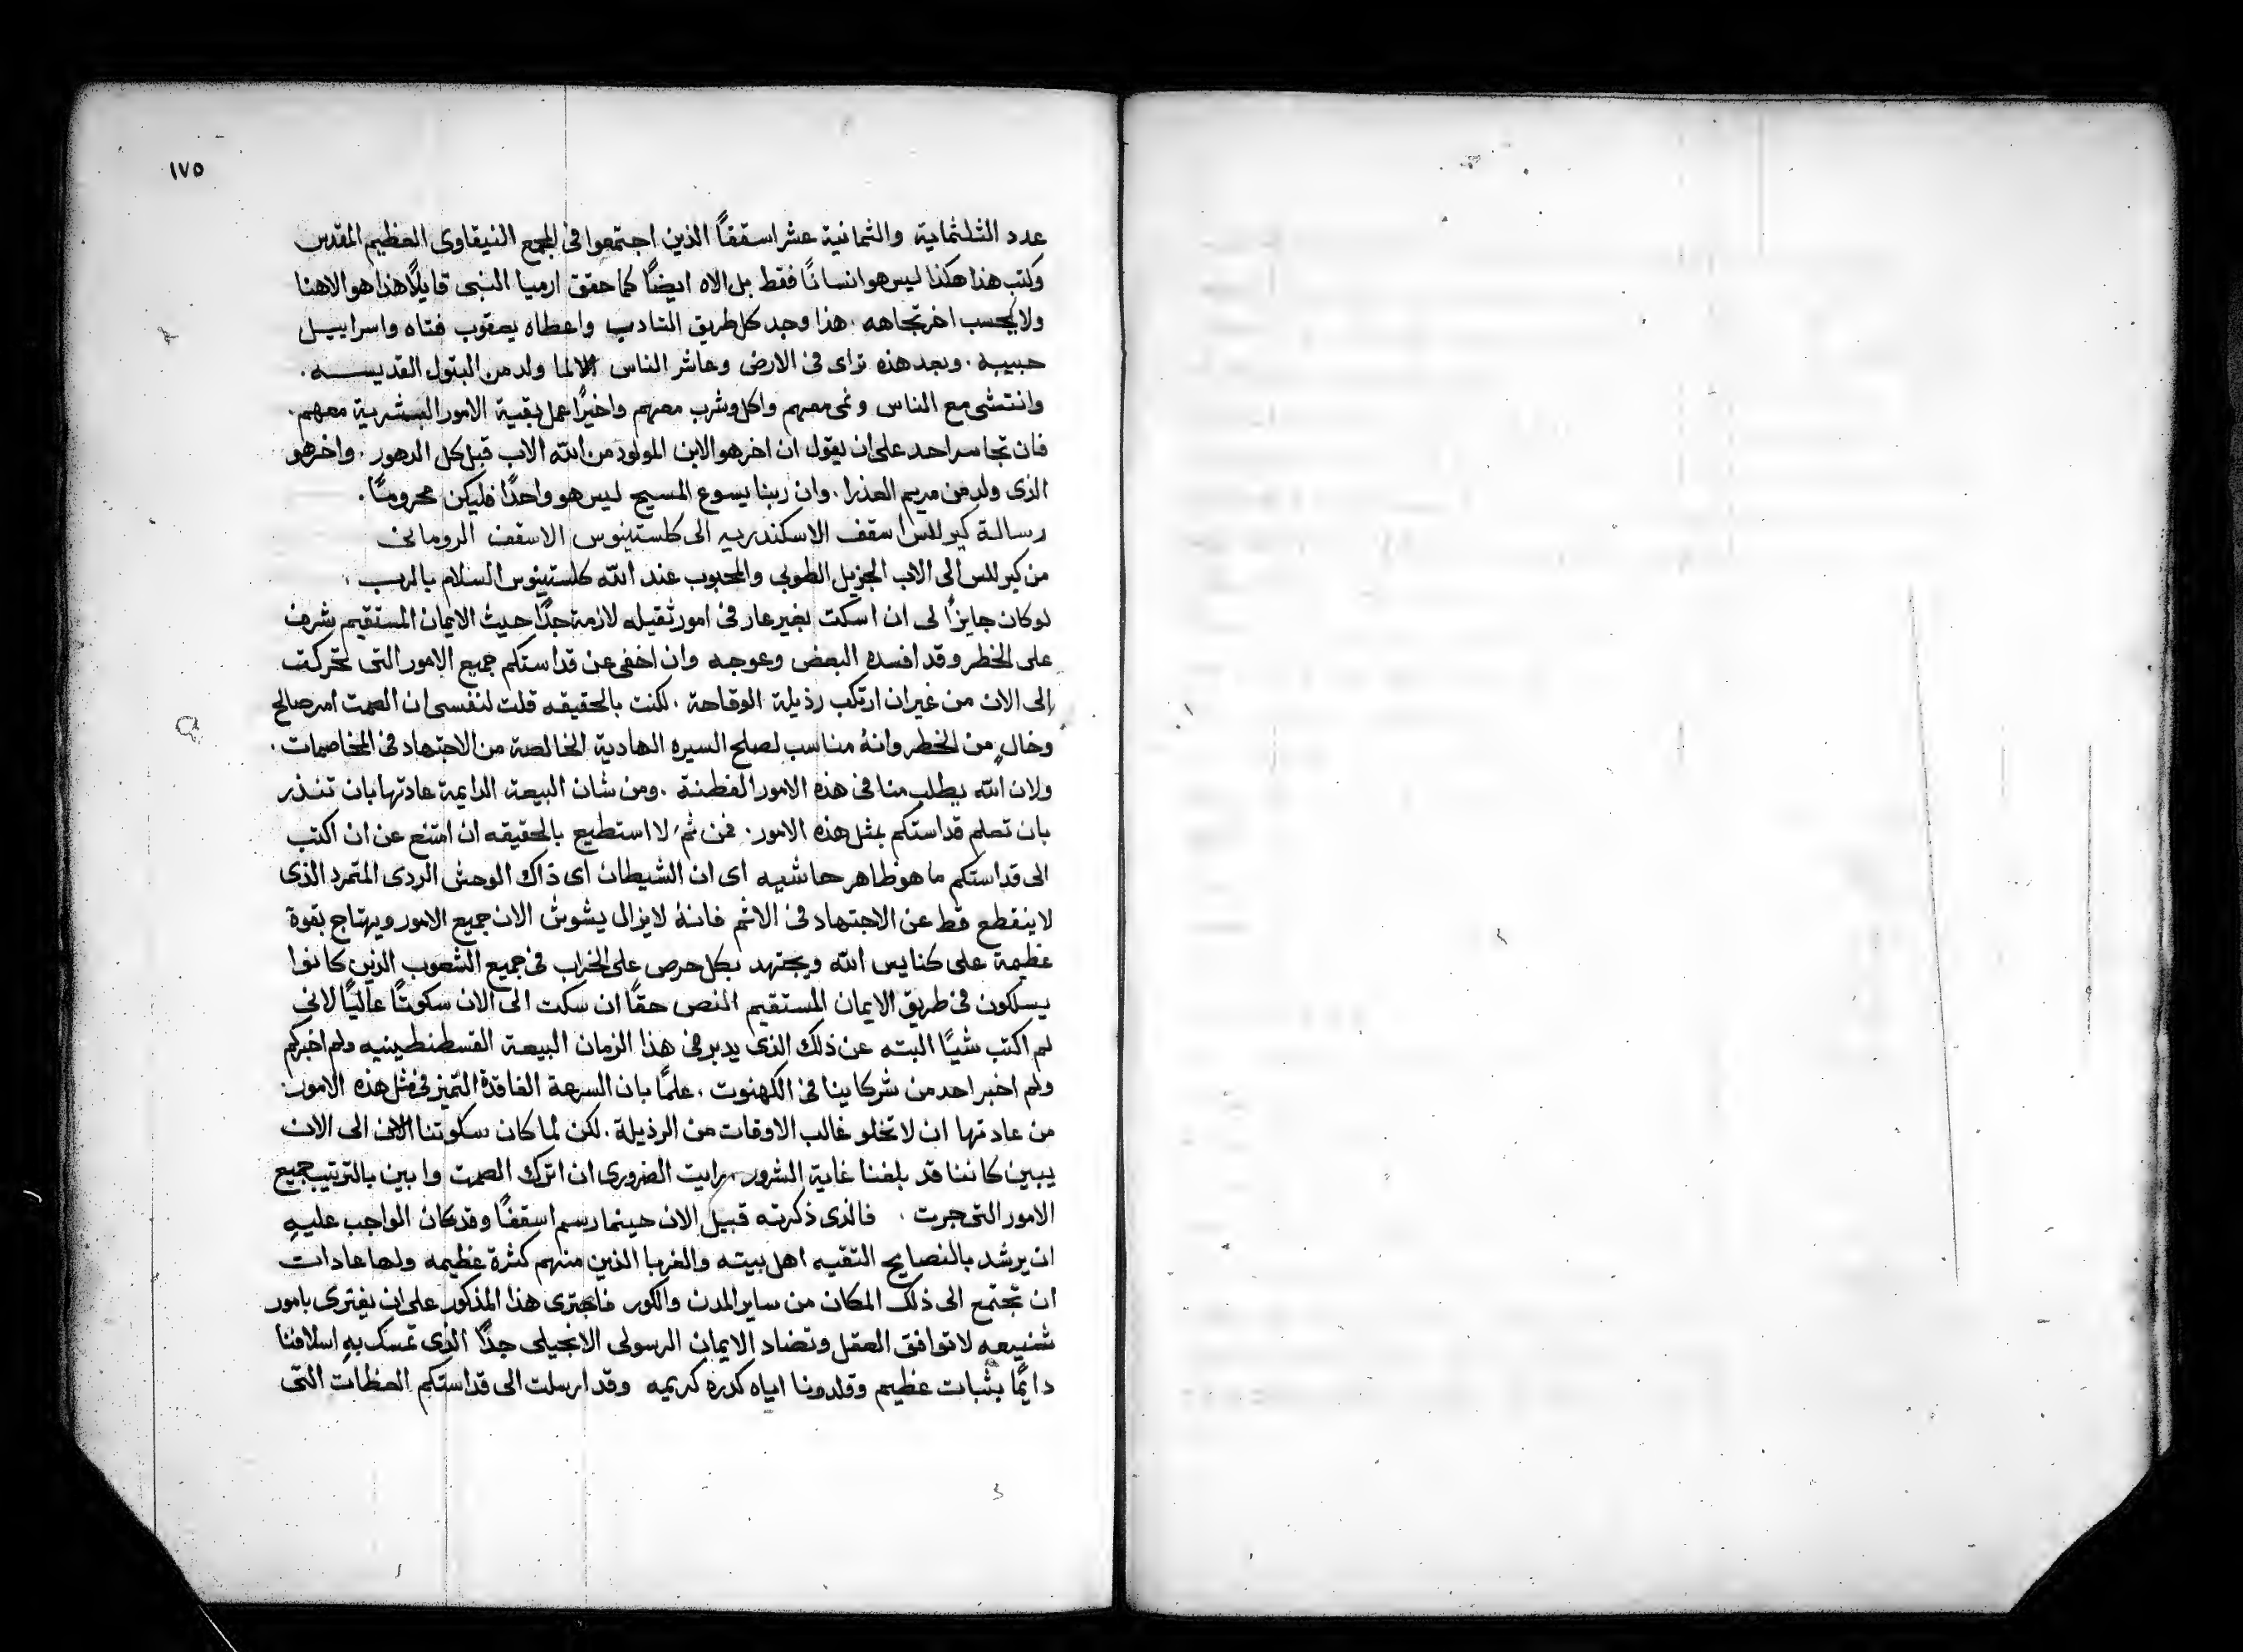 ١٧٥
عدد الثلثماية والثمانية عشر اسقفًا الذين اجتمعوا فى المجمع النيقاوى العظيم المقدس
وكتب هذا هكذا ليس هو انسانًا فقط بل الاه ايضًا كما حقق ارميا النبى قايلًا هذا هو الاهنا
ولا يحسب اخر تجاهه . هذا وجد كل طريق التاديب واعطاه يعقوب فتاه واسراييل
حبيبه . وبعد هذه تراى فى الارض وعاشر الناس لما ولد من البتول القديسه .
وانتشى مع الناس ونمى معهم واكل وشرب معهم واخيرًا عمل بقية الامور البشرية معهم .
فان تجاسر احد على ان يقول ان اخر هو الابن المولود من الله الاب قبل كل الدهور . واخر هو
الذى ولد من مريم العذرا . وان ربنا يسوع المسيح ليس هو واحدًا فليكن محرومًا .
رسالة كيرللس اسقف الاسكندريه الى كلستينوس الاسقف الرومانى
من كيرللس الى الاب الجزيل الطوبى والمحبوب عند الله كلستينوس السلام بالرب .
لو كان جايزًا لى ان اسكت بغير عار فى امور ثقيله لازمة جدًا حيث الايمان المستقيم يشرف
على الخطر وقد افسده البعض وعوجه وان اخفى عن قداستكم جميع الامور التى تحركت
الى الان من غير ان ارتكب رذيلة الوقاحة . لكنت بالحقيقه قلت لنفسى ان الصمت امر صالح
وخالٍ من الخطر وانهُ مناسب لصلح السيره الهادية الخالصة من الاجتهاد فى المخاصمات .
ولان الله يطلب منا فى هذه الامور الفطنة . ومن شان البيعة الدايمة عادتها بان تنذر
بان تعلم قداستكم بمثل هذه الامور . فمن ثم لا استطيع بالحقيقه ان امتنع عن ان اكتب
الى قداستكم ما هو ظاهر حاشيه اى ان الشيطان اى ذاك الوحش الردى المتمرد الذى
لا ينقطع قط عن الاجتهاد فى الاثم فانهُ لا يزال يشوش الان جميع الامور ويهتاج بقوة
عظيمة على كنايس الله ويجتهد بكل حرص على الخراب فى جميع الشعوب الذين كانوا
يسلكون فى طريق الايمان المستقيم النص حقًا ان سكت الى الان سكوتًا عاليًا لانى
لم اكتب شيًا البته عن ذلك الذى يدبر فى هذا الزمان البيعة القسطنطينيه ولم اخبركم
ولم اخبر احد من شركاينا فى الكهنوت . علمًا بان السرعة الفاقدة التميز فى مثل هذه الامور
من عادتها ان لا تخلو غالب الاوقات من الرذيلة . لكن لما كان سكوتنا الى الان
يبين كاننا قد بلغنا غاية الشرور رايت الضرورى ان اترك الصمت وابين بالترتيب جميع
الامور التى جرت . فالذى ذكرته قبيل الان حينما رسم اسقفًا وقد كان الواجب عليهِ
ان يرشد بالنصايح التقيه اهل بيته والغربا الذين منهم كثرة عظيمه ولها عادات
ان تجتمع الى ذلك المكان من ساير المدن والكور فاجترى هذا المذكور على ان يفترى بامور
شنيعه لا توافق العقل وتضاد الايمان الرسولى الانجيلى جدًا الذى تمسك بهِ اسلافنا
دايمًا بثبات عظيم وقلدونا اياه كدره كريمه وقد ارسلت الى قداستكم العظات التى